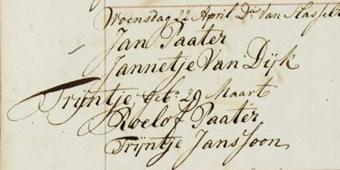 Woensdag 22 April Ds. Van Hasselt
Jan Paater
Jannetje Van Dijk
Trijntje, geb: 29 Maart
Roelof Paater
Trijntje Janssoon